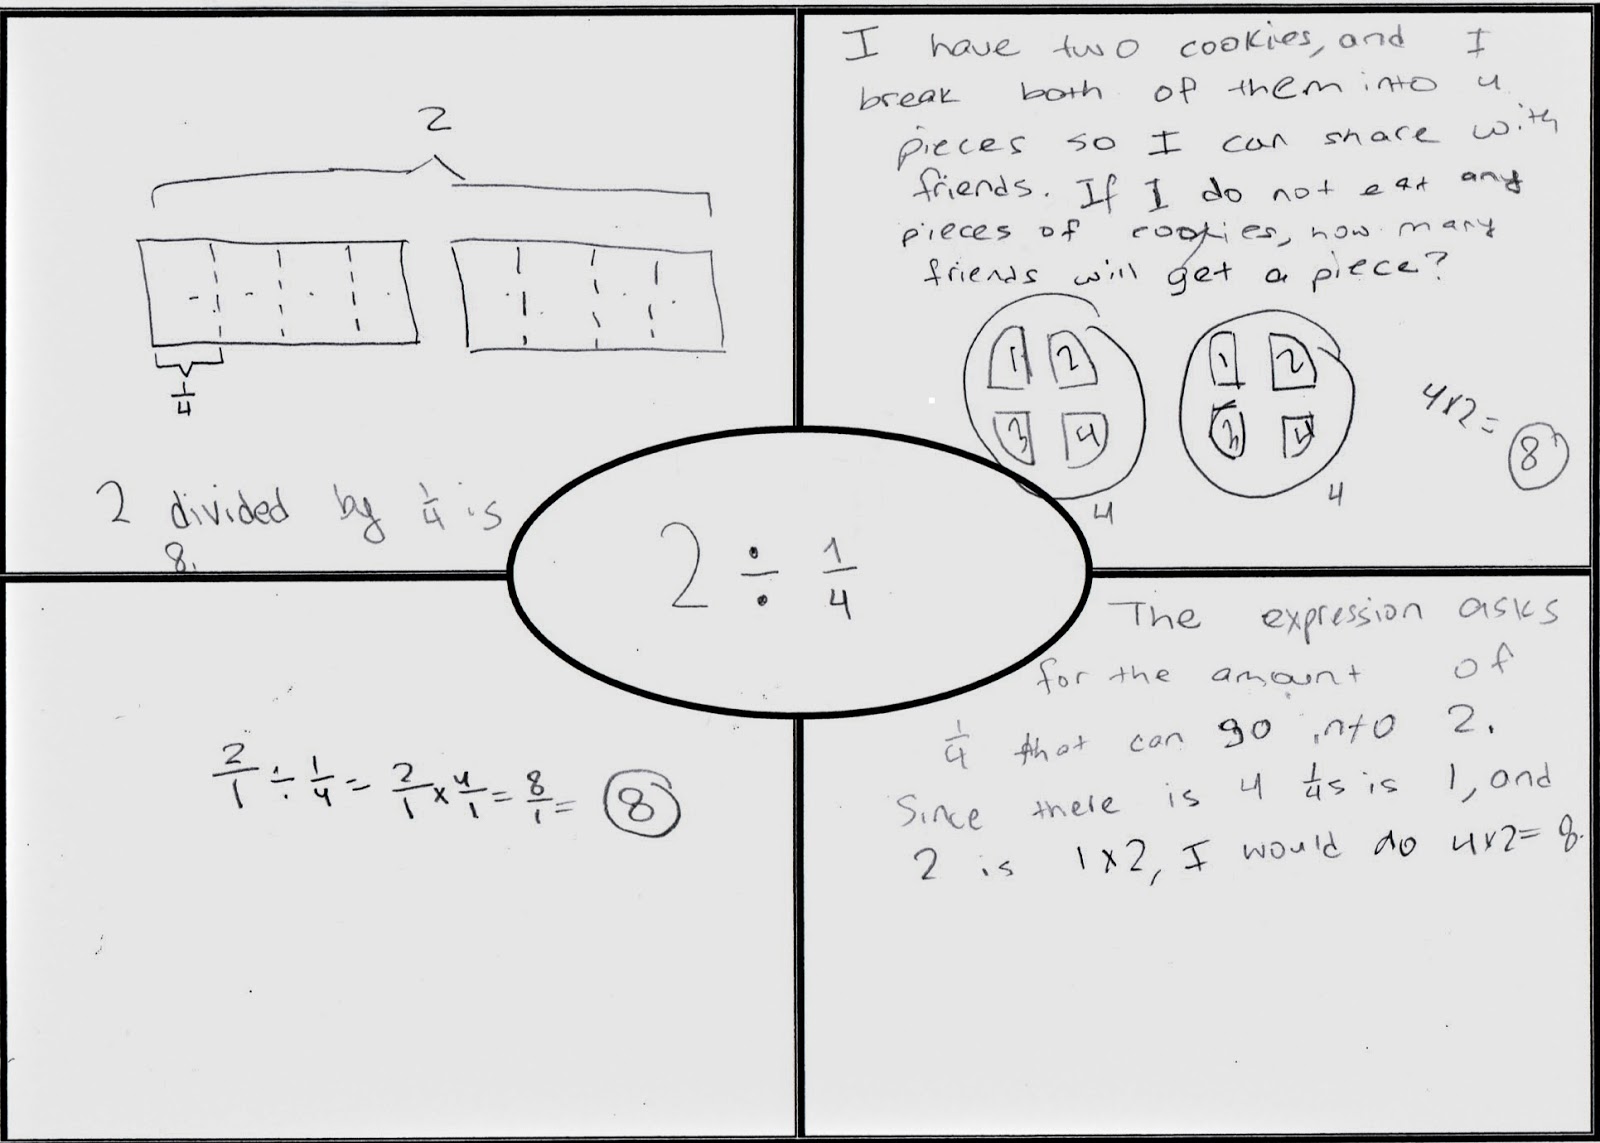 2
1/4
2 divided by 1/4 is
8.
I have two cookies, and I
break both of them into 4
pieces so I can share with
friends. If I do not eat any
pieces of cookies, how many
friends will get a piece?
1 2 1 2
3 4 3 4
4 4
4x2=
8
2 ÷ 1/4
2/1 ÷ 1/4 = 2/1 x 4/1 = 8/1 = 8
The expression asks
for the amount of
1/4 that can go into 2.
Since there is 4 1/4s is 1, and
2 is 1x2, I would do 4x2=8.